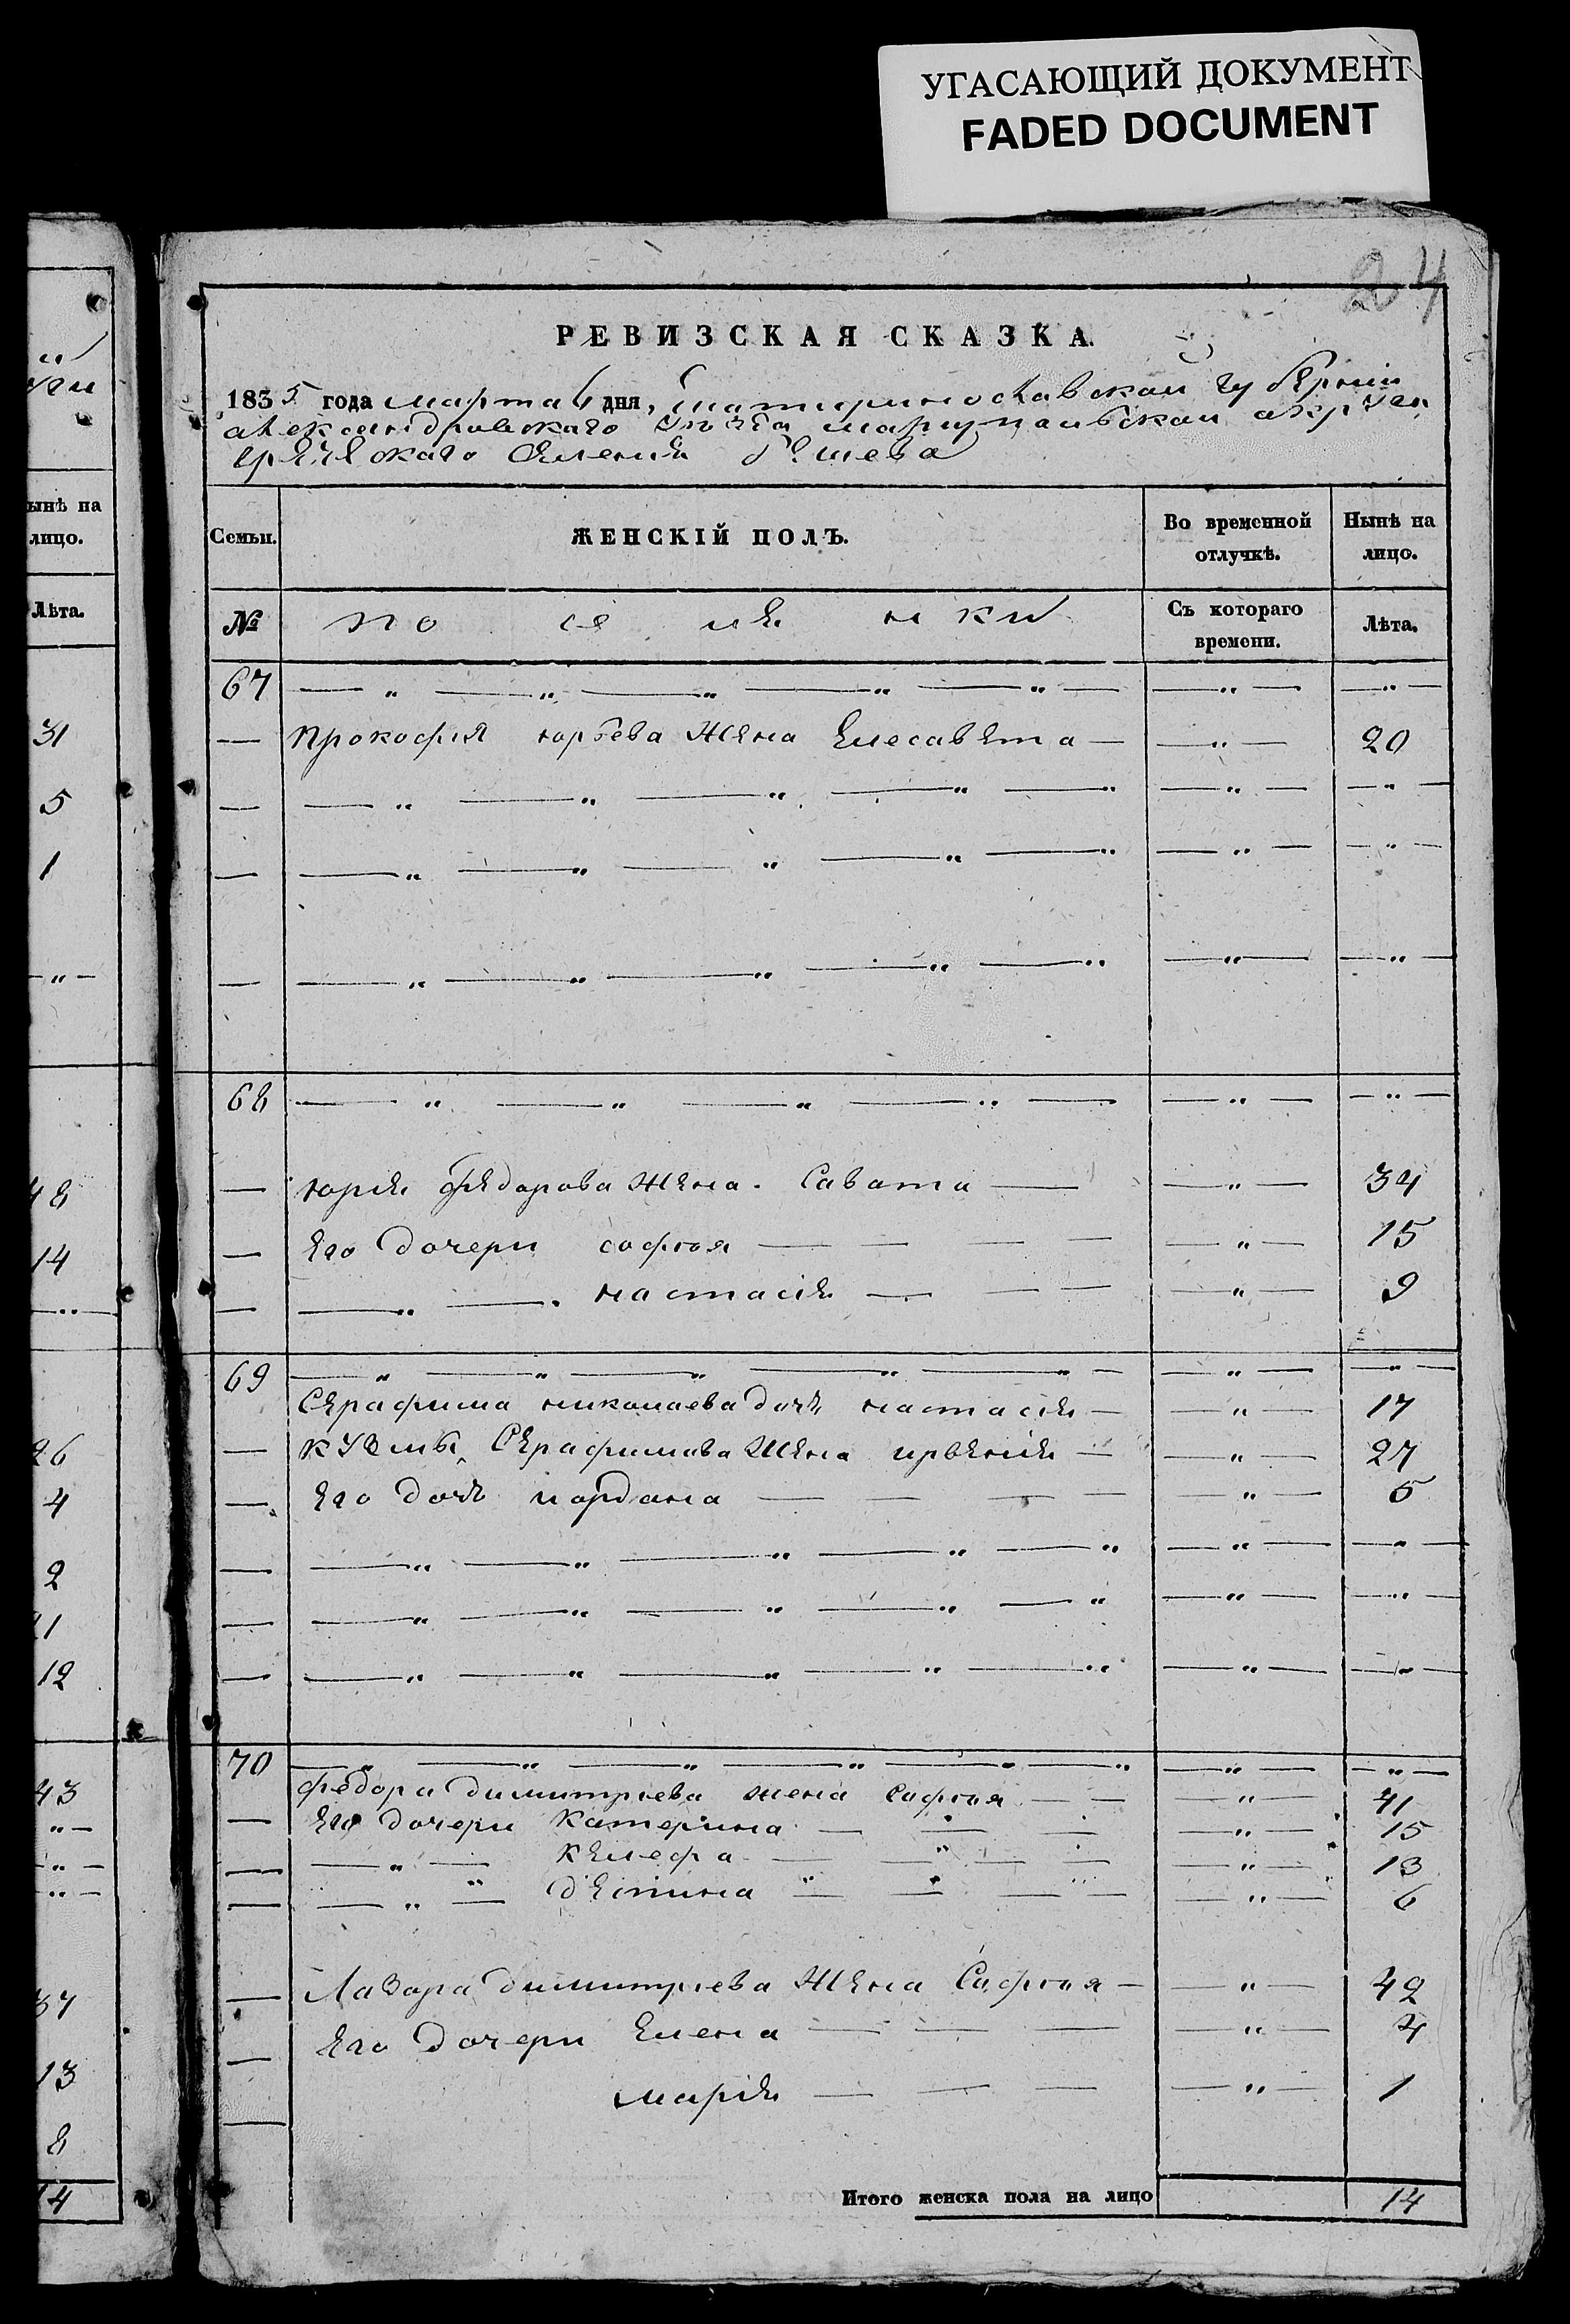 УГАСАЮЩИЙ ДОКУМЕНТ
FADED DOCUMENT
24
РЕВИЗСКАЯ СКАЗКА.
1835 года марта дня, Екатеринославской губернии
александровского мариупольской округи
греческаго селения бешева
Семьи.
ЖЕНСКІЙ ПОЛЪ.
Во временной отлучкѣ.
Нынѣ на лицо.
№
по се ля нки
Съ котораго времени.
Лѣта.
67 — „ — „ — „ — „ — „ — — „ — — „ —
— Прокофия юрьева жена Елесавета — — „ — 20
— — „ — „ — „ — „ — „ — „ — — „ —
— — „ — „ — „ — „ — „ — „ — — „ —
— — „ — „ — „ — „ — „ — „ — — „ —
68 — „ — „ — „ — „ — — „ — — „ —
— юрия федорова жена. Савата — — „ — 34
— Его дочери софия — — — — — „ — 15
— — „ — „ настасия — — — — „ — 9
69 — „ — „ — „ — „ — „ — — „ — — „ —
Серафима николаева дочь настасия — — „ — 17
— кузмы Серафимова жена ирвения — — „ — 27
— Его дочь иордана — — — — — „ — 5
— — „ — „ — „ — „ — „ — „ — — „ —
— — „ — „ — „ — „ — „ — „ — — „ —
— — „ — „ — „ — „ — „ — „ — — „ —
70 — „ — „ — „ — „ — „ — „ — „ — — „ —
федора димитриева жена София — — — „ — 41
— Его дочери Катерина — — — — „ — 15
— — „ — Келефа — — — — — „ — 13
— — „ — деспина — — — — — „ — 6
— Лазара димитриева жена София — — „ — 42
— Его дочери Елена — — — — „ — 4
мария — — — — „ — 1
—
Итого женска пола на лицо 14
ынѣ на
лицо.
Лѣта.
31
5
1
— „ —
48
14
— „ —
26
4
2
12
43
„ —
— „ —
— „ —
37
13
8
14